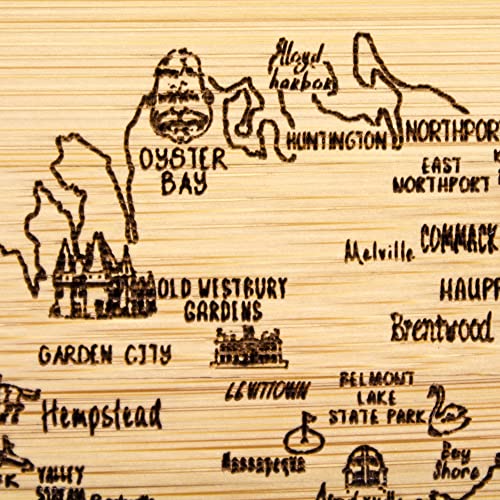 Lloyd
harbor
HUNTINGTON
NORTHPOR
OYSTER
BAY
EAST
NORTHPORT
Melville
COMMACK
OLD WESTBURY
GARDENS
HAUPP
Brentwood
GARDEN CITY
LEWITTOWN
BELMONT
LAKE
STATE PARK
Hempstead
Massapequa
Bay
Shore
VALLEY
STREAM